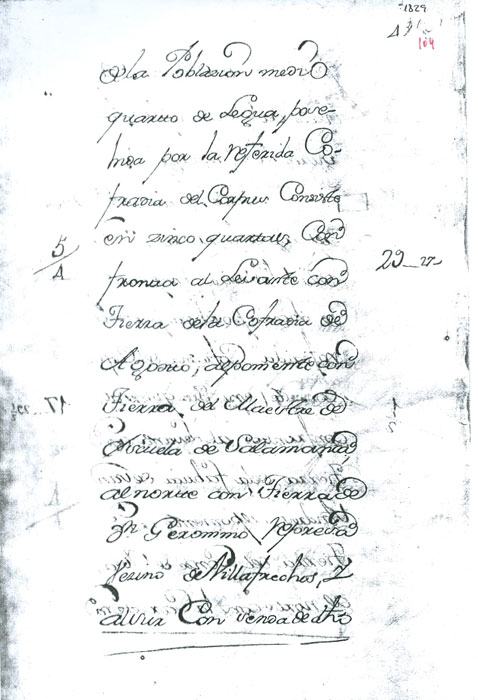 1829
104
a la Poblazion medio
quarto de Legua, pove-
por la referida Co-
fradia del Corpus Consiste
en zinco quartas, Con
5
4
29_27
fronta al Levante con
Tierra de la Cofradia de
al poniente con
Tierra del Maestre de
Escuela de Salamanca,
al norte con Tierra de
Dn Geronimo
vezino de Villafrechos, Y
al sur Con senda de dho